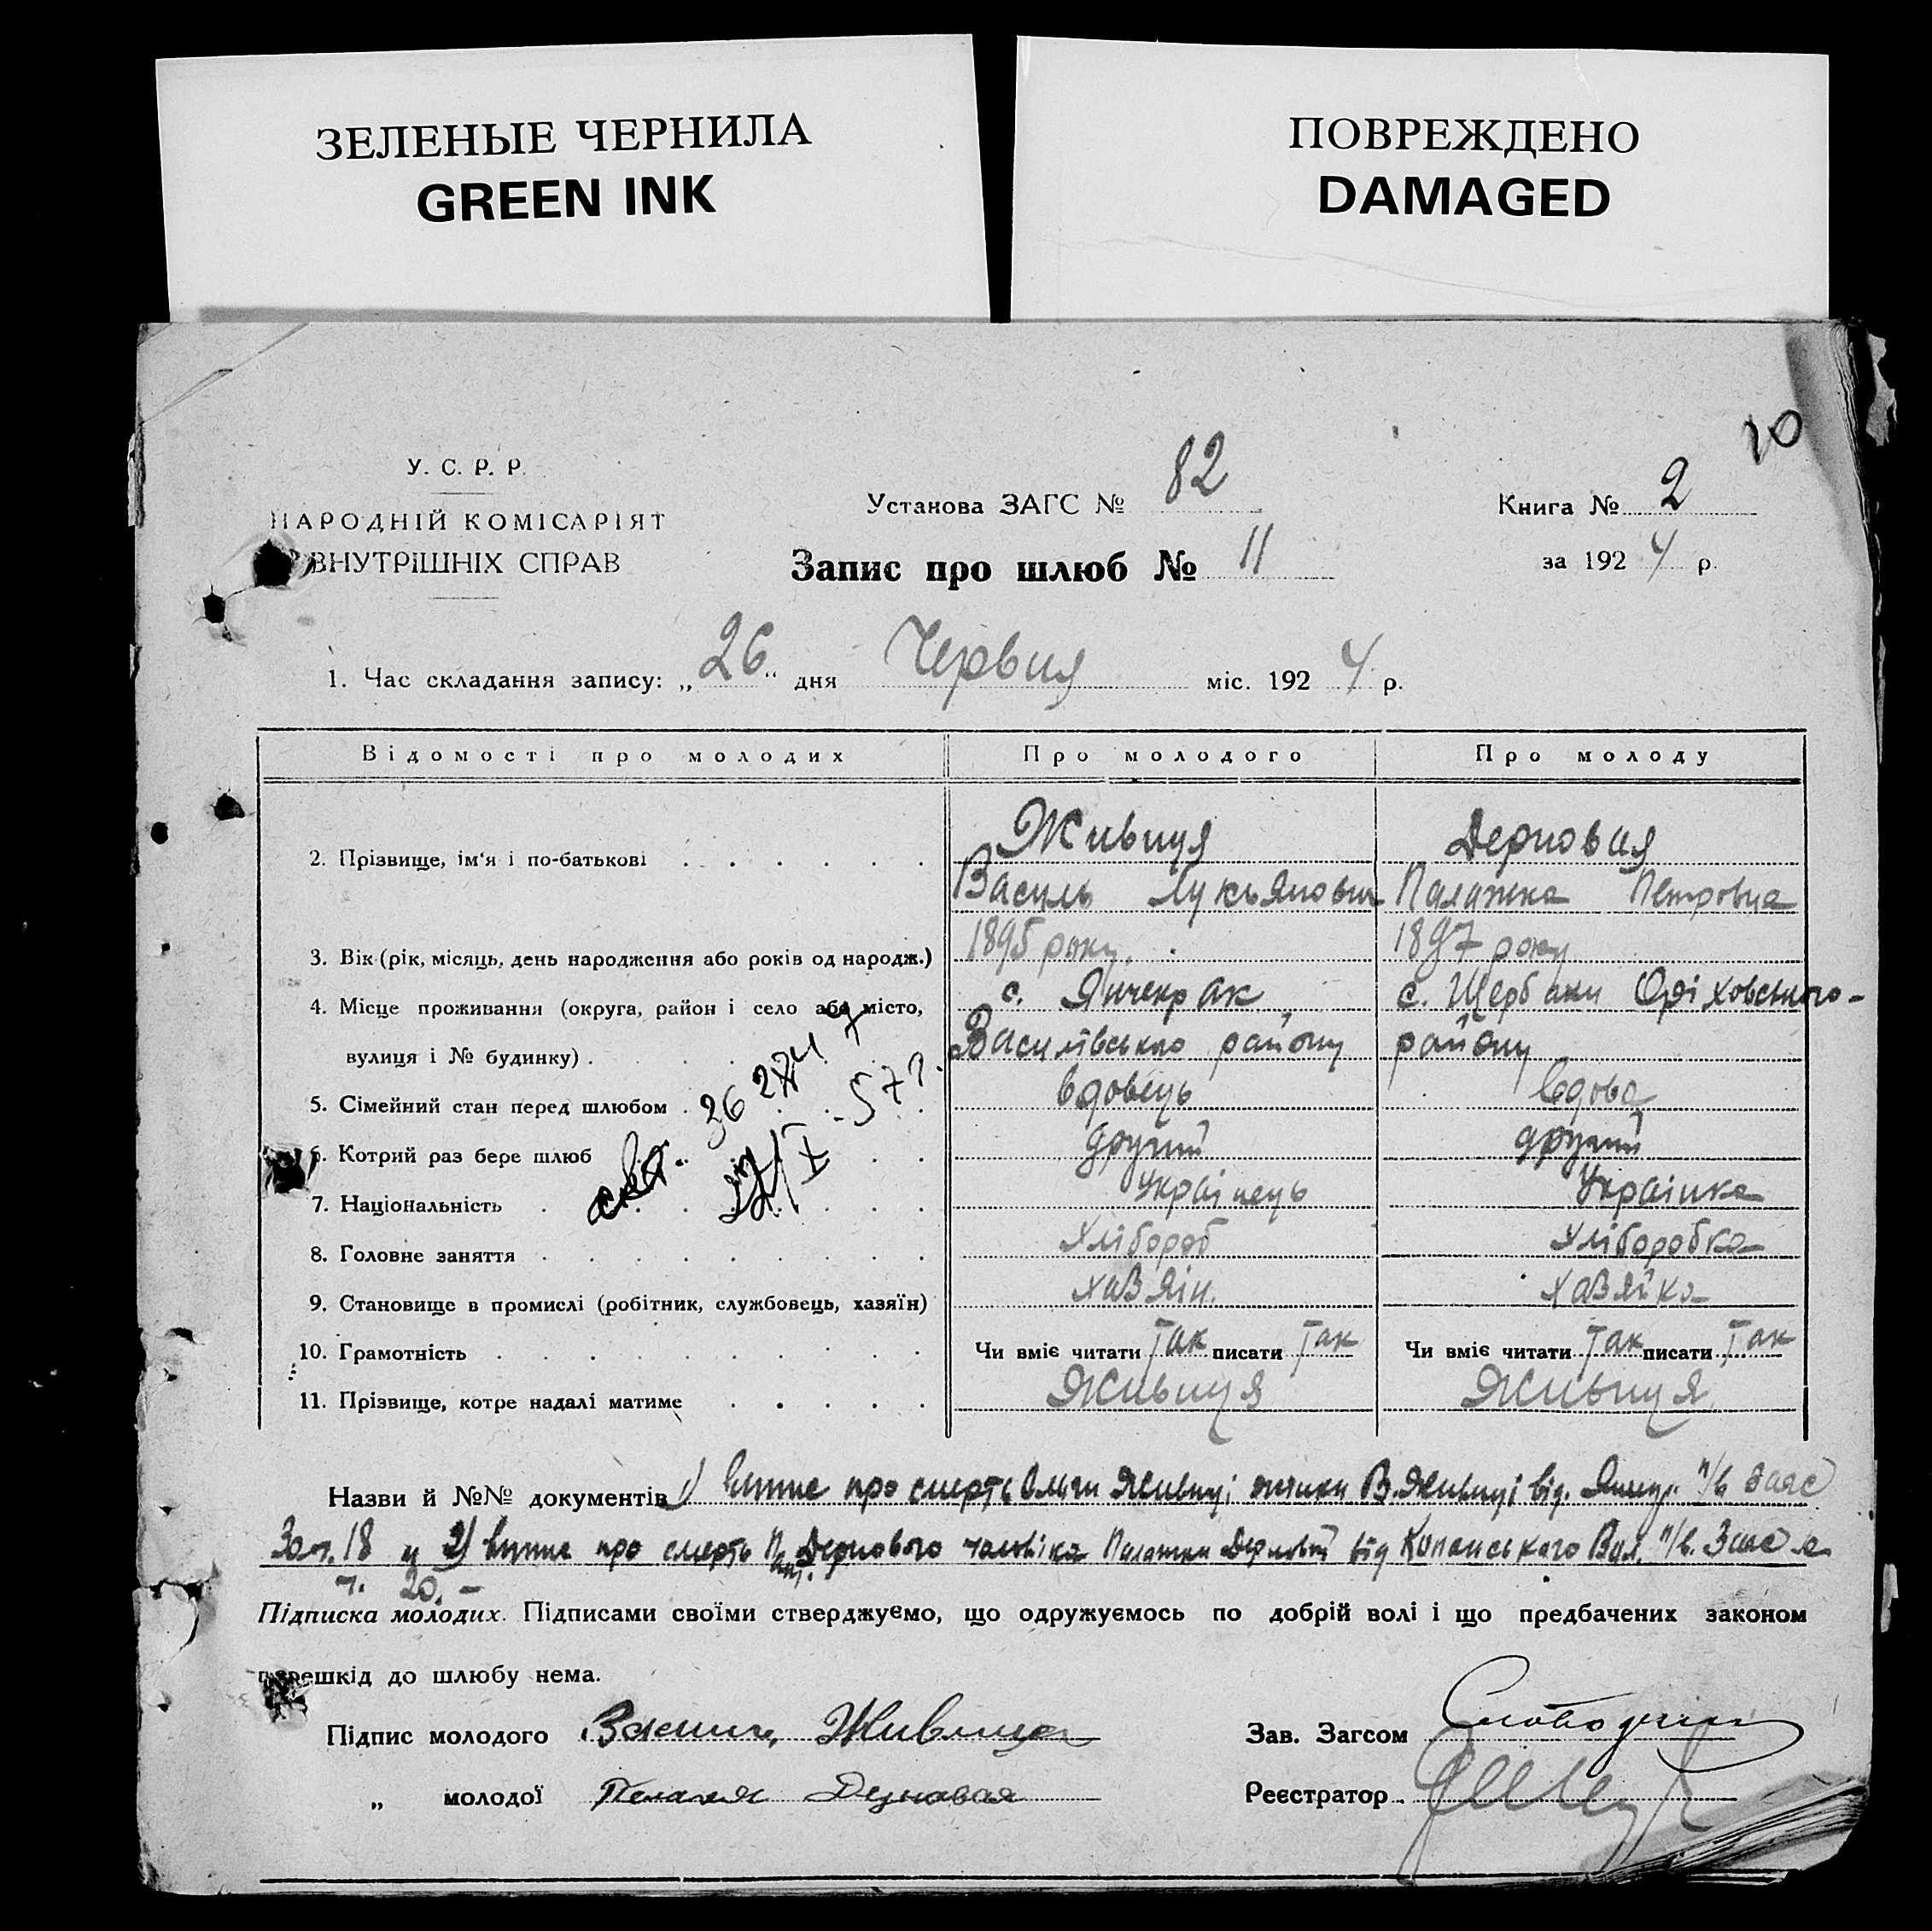 ЗЕЛЕНЫЕ ЧЕРНИЛА
GREEN INK
ПОВРЕЖДЕНО
DAMAGED
10
У. С. Р. Р.
НАРОДНІЙ КОМІСАРІЯТ
ВНУТРІШНІХ СПРАВ
Установа ЗАГС № 82
Запис про шлюб № 11
Книга № 2
за 1924 р.
1. Час складання запису: „26“ дня Червня міс. 1924 р.
Відомості про молодих Про молодого Про молоду
2. Прізвище, ім'я і по-батькові Живиця Дерновая
Василь Лукьянович Палажка Петровна
3. Вік (рік, місяць, день народження або років од народж.) 1895 року. 1897 року
4. Місце проживання (округа, район і село або місто, с. Янчекрак с. Щербаки Оріховського-
вулиця і № будинку) Василівського району району
5. Сімейний стан перед шлюбом вдовець вдова
6. Котрий раз бере шлюб другий другий
7. Національність Українець Українка
8. Головне заняття Хлібороб Хліборобка
9. Становище в промислі (робітник, службовець, хазяїн) хазяін. хазяйка
10. Грамотність Чи вміє читати так писати так Чи вміє читати так писати так
11. Прізвище, котре надалі матиме Живиця Живиця
Назви й №№ документів 1) випис про смерть Ольги Живиці жінки В. Живиці від п/в Загс
18 и 2) випис про смерть Дернового чоловіка Палажки Дернової від Копанського п/в. Загс а
ч. 20. –
Підписка молодих. Підписами своїми стверджуємо, що одружуємось по добрій волі і що предбачених законом
перешкід до шлюбу нема.
Підпис молодого Живиця
Зав. Загсом
„ молодої Пелагея Дерновая
Реєстратор